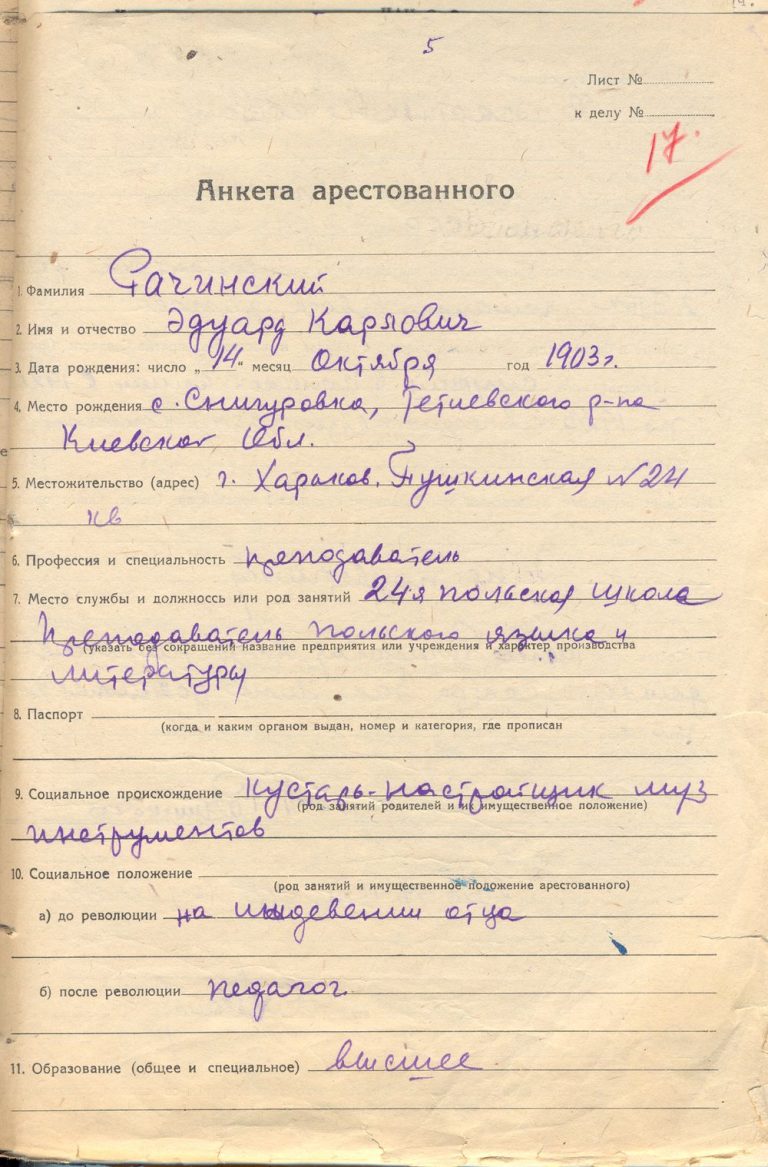 5
Лист №
к делу №
17.
Анкета арестованного
1. Фамилия Рачинский
2. Имя и отчество Эдуард Карлович
3. Дата рождения: число „14“ месяц Октября год 1903 г.
4. Место рождения с. Снигуровка, Тетиевского р-на
Киевской Обл.
5. Местожительство (адрес) г. Харьков. Пушкинская N 24
кв
6. Профессия и специальность преподаватель
7. Место службы и должноссь или род занятий 24я польская школа
Преподаватель польского языка и
(указать без сокращений название предприятия или учреждения и характер производства
литературы
8. Паспорт
(когда и каким органом выдан, номер и категория, где прописан
9. Социальное происхождение Кустарь-настройщик муз
(род занятий родителей и их имущественное положение)
инструментов
10. Социальное положение
(род занятий и имущественное положение арестованного)
а) до революции на иждевении отца
б) после революции педагог.
11. Образование (общее и специальное) высшее